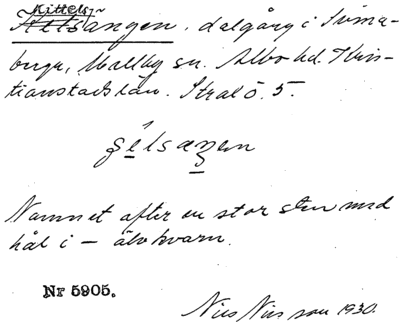 Kittels-
Kilsangen, dalgång i Svina-
berga, Mellby sn. Albo hd. Kris-
tianstads län. Stral ö. 5.
Namnet efter en stor sten med
hål i – älvkvarn.
Nr 5905.
Nils Nilsson 1930.